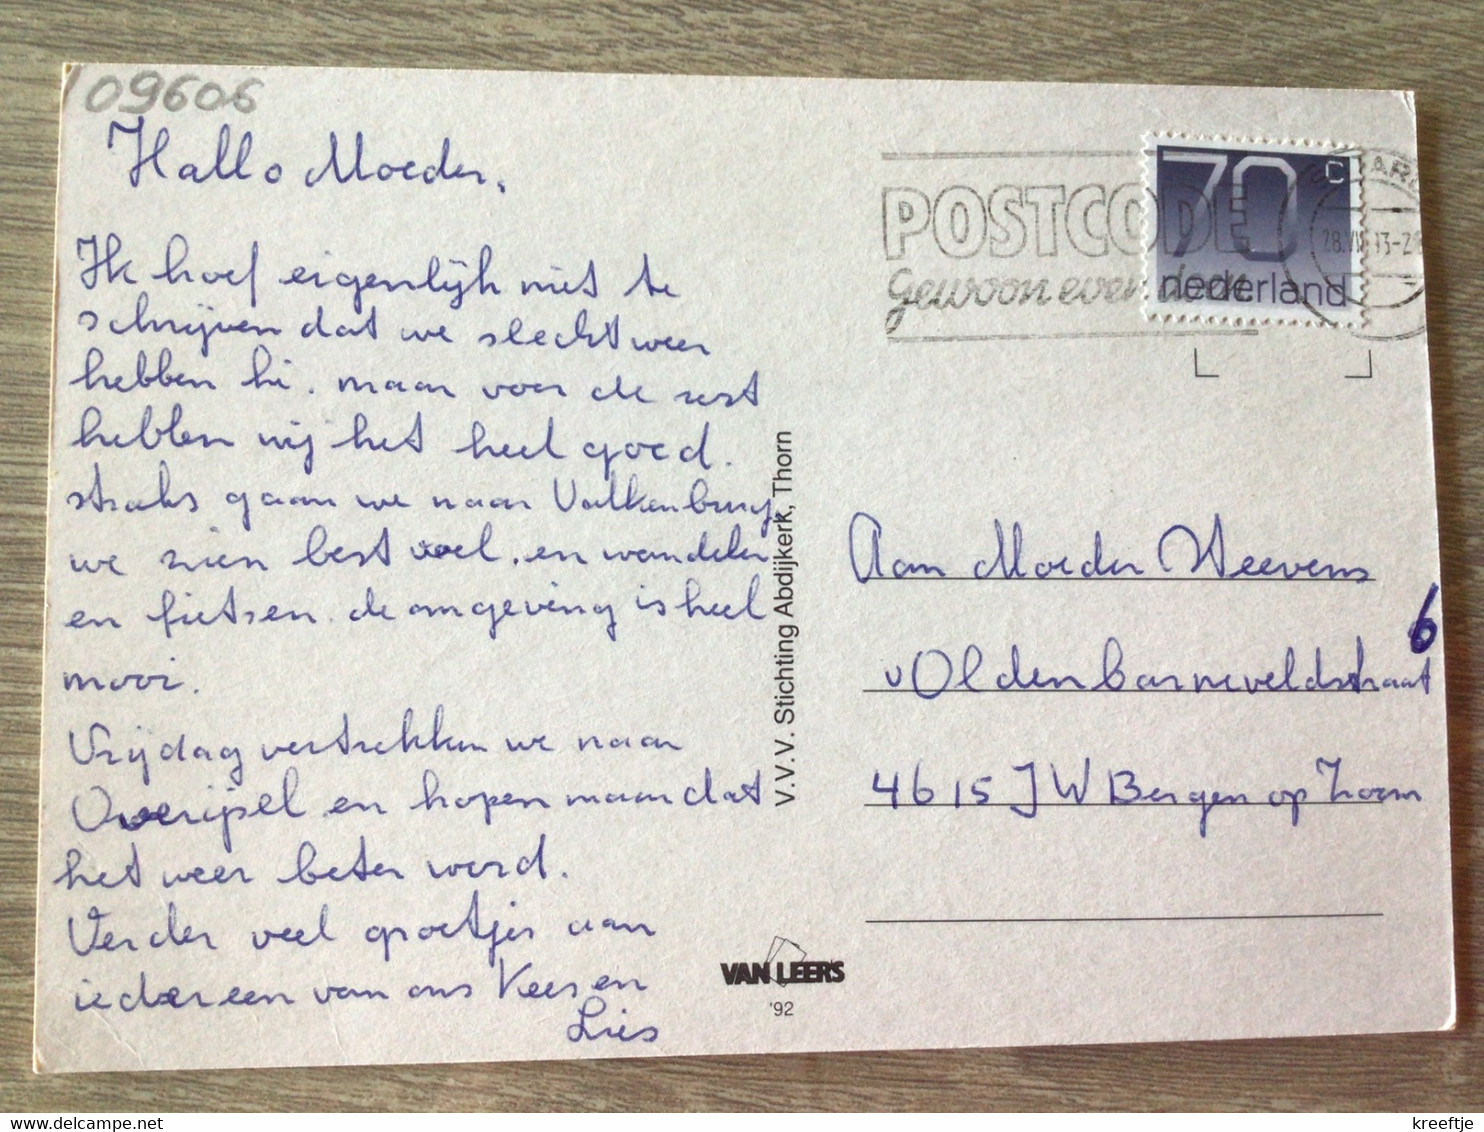 09606
Hallo Moeder,
Ik hoef eigenlijk niet te
schrijven dat we slecht weer
hebben hé. maar voor de rest
hebben wij het heel goed.
straks gaan we naar Valkenburg
we zien best veel. en wandelen
en fietsen. de omgeving is heel
mooi.
Vrijdag vertrekken we naar
Overijsel en hopen maar dat
het weer beter word.
Verder veel groetjes aan
iedereen van ons Kees en
Lies
V.V.V. Stichting Abdijkerk, Thorn
VAN LEER'S
'92
POSTCODE
gewoon even doen
70 c
nederland
28.VII
13-2
Aan Moeder Weevens
6
v Oldenbarneveldstraat
4615 JW Bergen op Zoom
kreeftje